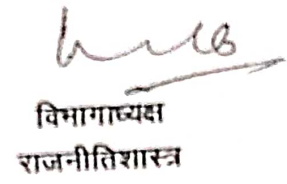 विभागाध्यक्ष
राजनीतिशास्त्र